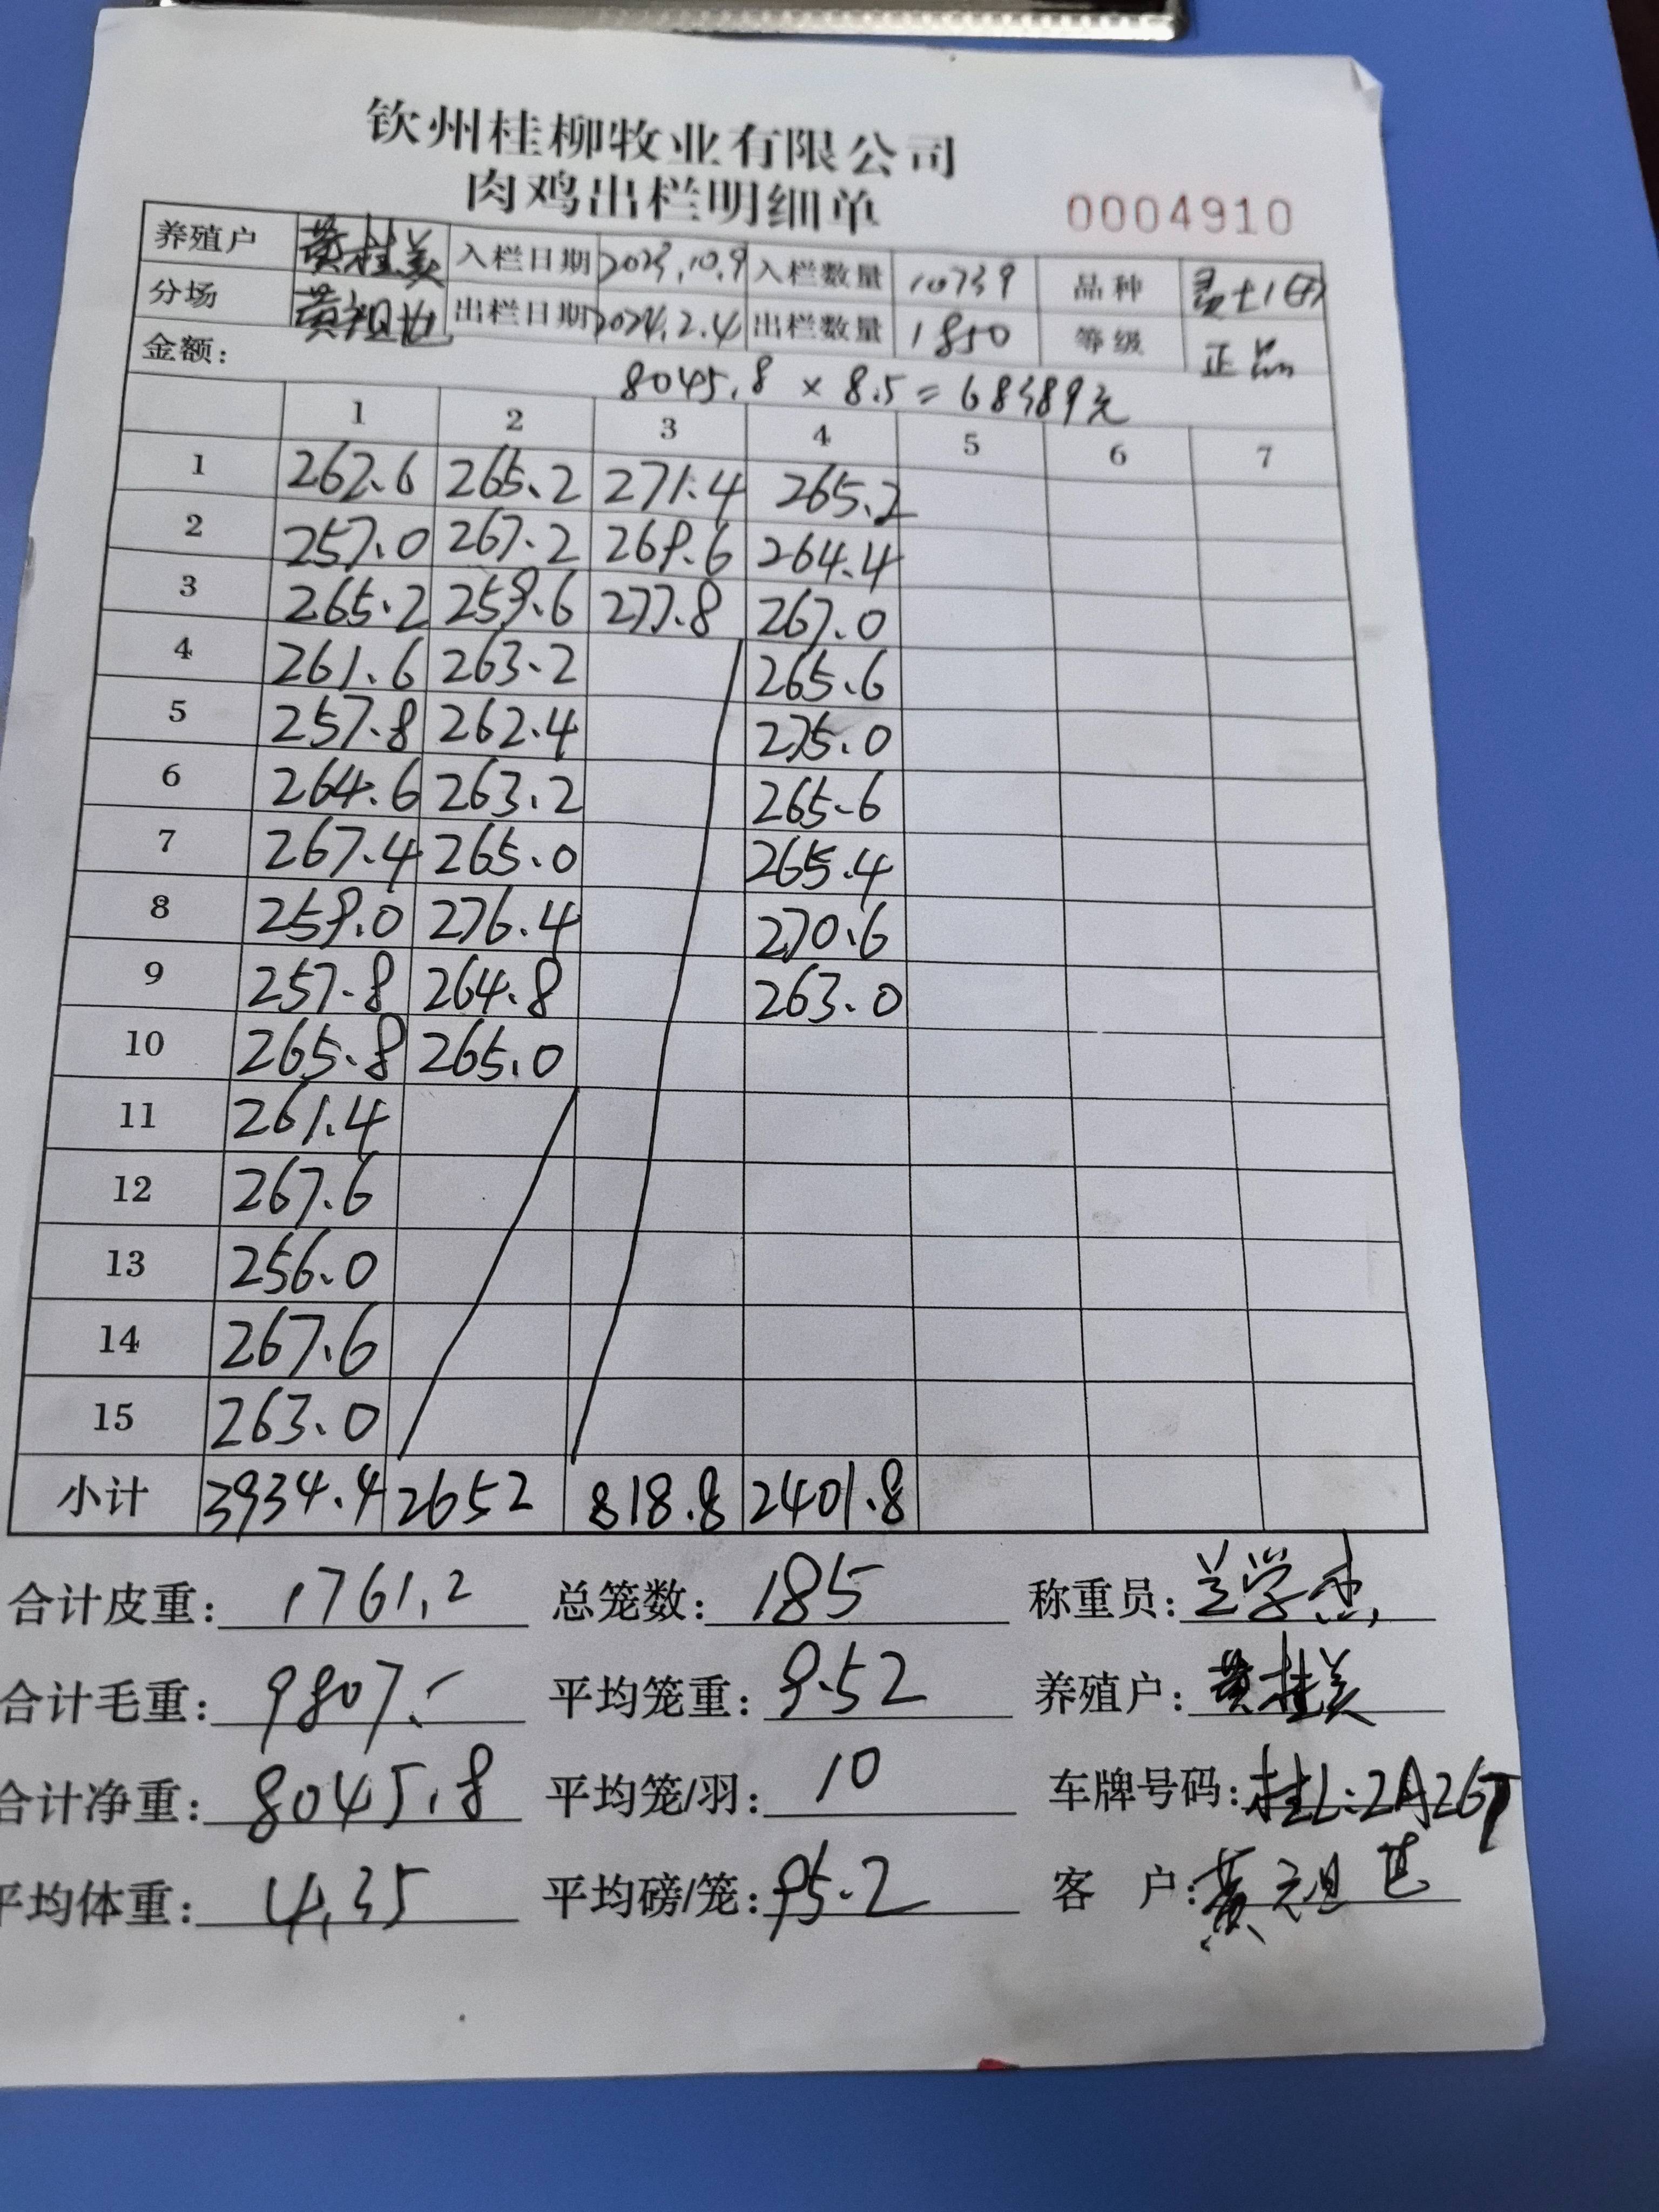 钦州桂柳牧业有限公司
肉鸡出栏明细单
0004910
养殖户 黄桂美 入栏日期 2023.10.9 入栏数量 10739 品种
分场 黄祖 出栏日期 2024.2.4 出栏数量 1850 等级 正品
金额: 8045.8 × 8.5 = 68389元
1 2 3 4 5 6 7
1 262.6 265.2 271.4 265.2
2 257.0 267.2 269.6 264.4
3 265.2 259.6 277.8 267.0
4 261.6 263.2 265.6
5 257.8 262.4 275.0
6 264.6 263.2 265.6
7 267.4 265.0 265.4
8 259.0 276.4 270.6
9 257.8 264.8 263.0
10 265.8 265.0
11 261.4
12 267.6
13 256.0
14 267.6
15 263.0
小计 3934.4 2652 818.8 2401.8
合计皮重: 1761.2 总笼数: 185 称重员: 兰学
合计毛重: 9807. 平均笼重: 9.52 养殖户: 黄桂美
合计净重: 8045.8 平均笼/羽: 10 车牌号码: 桂L:2A26
平均体重: 4.35 平均磅/笼: 95.2 客 户: 黄祖